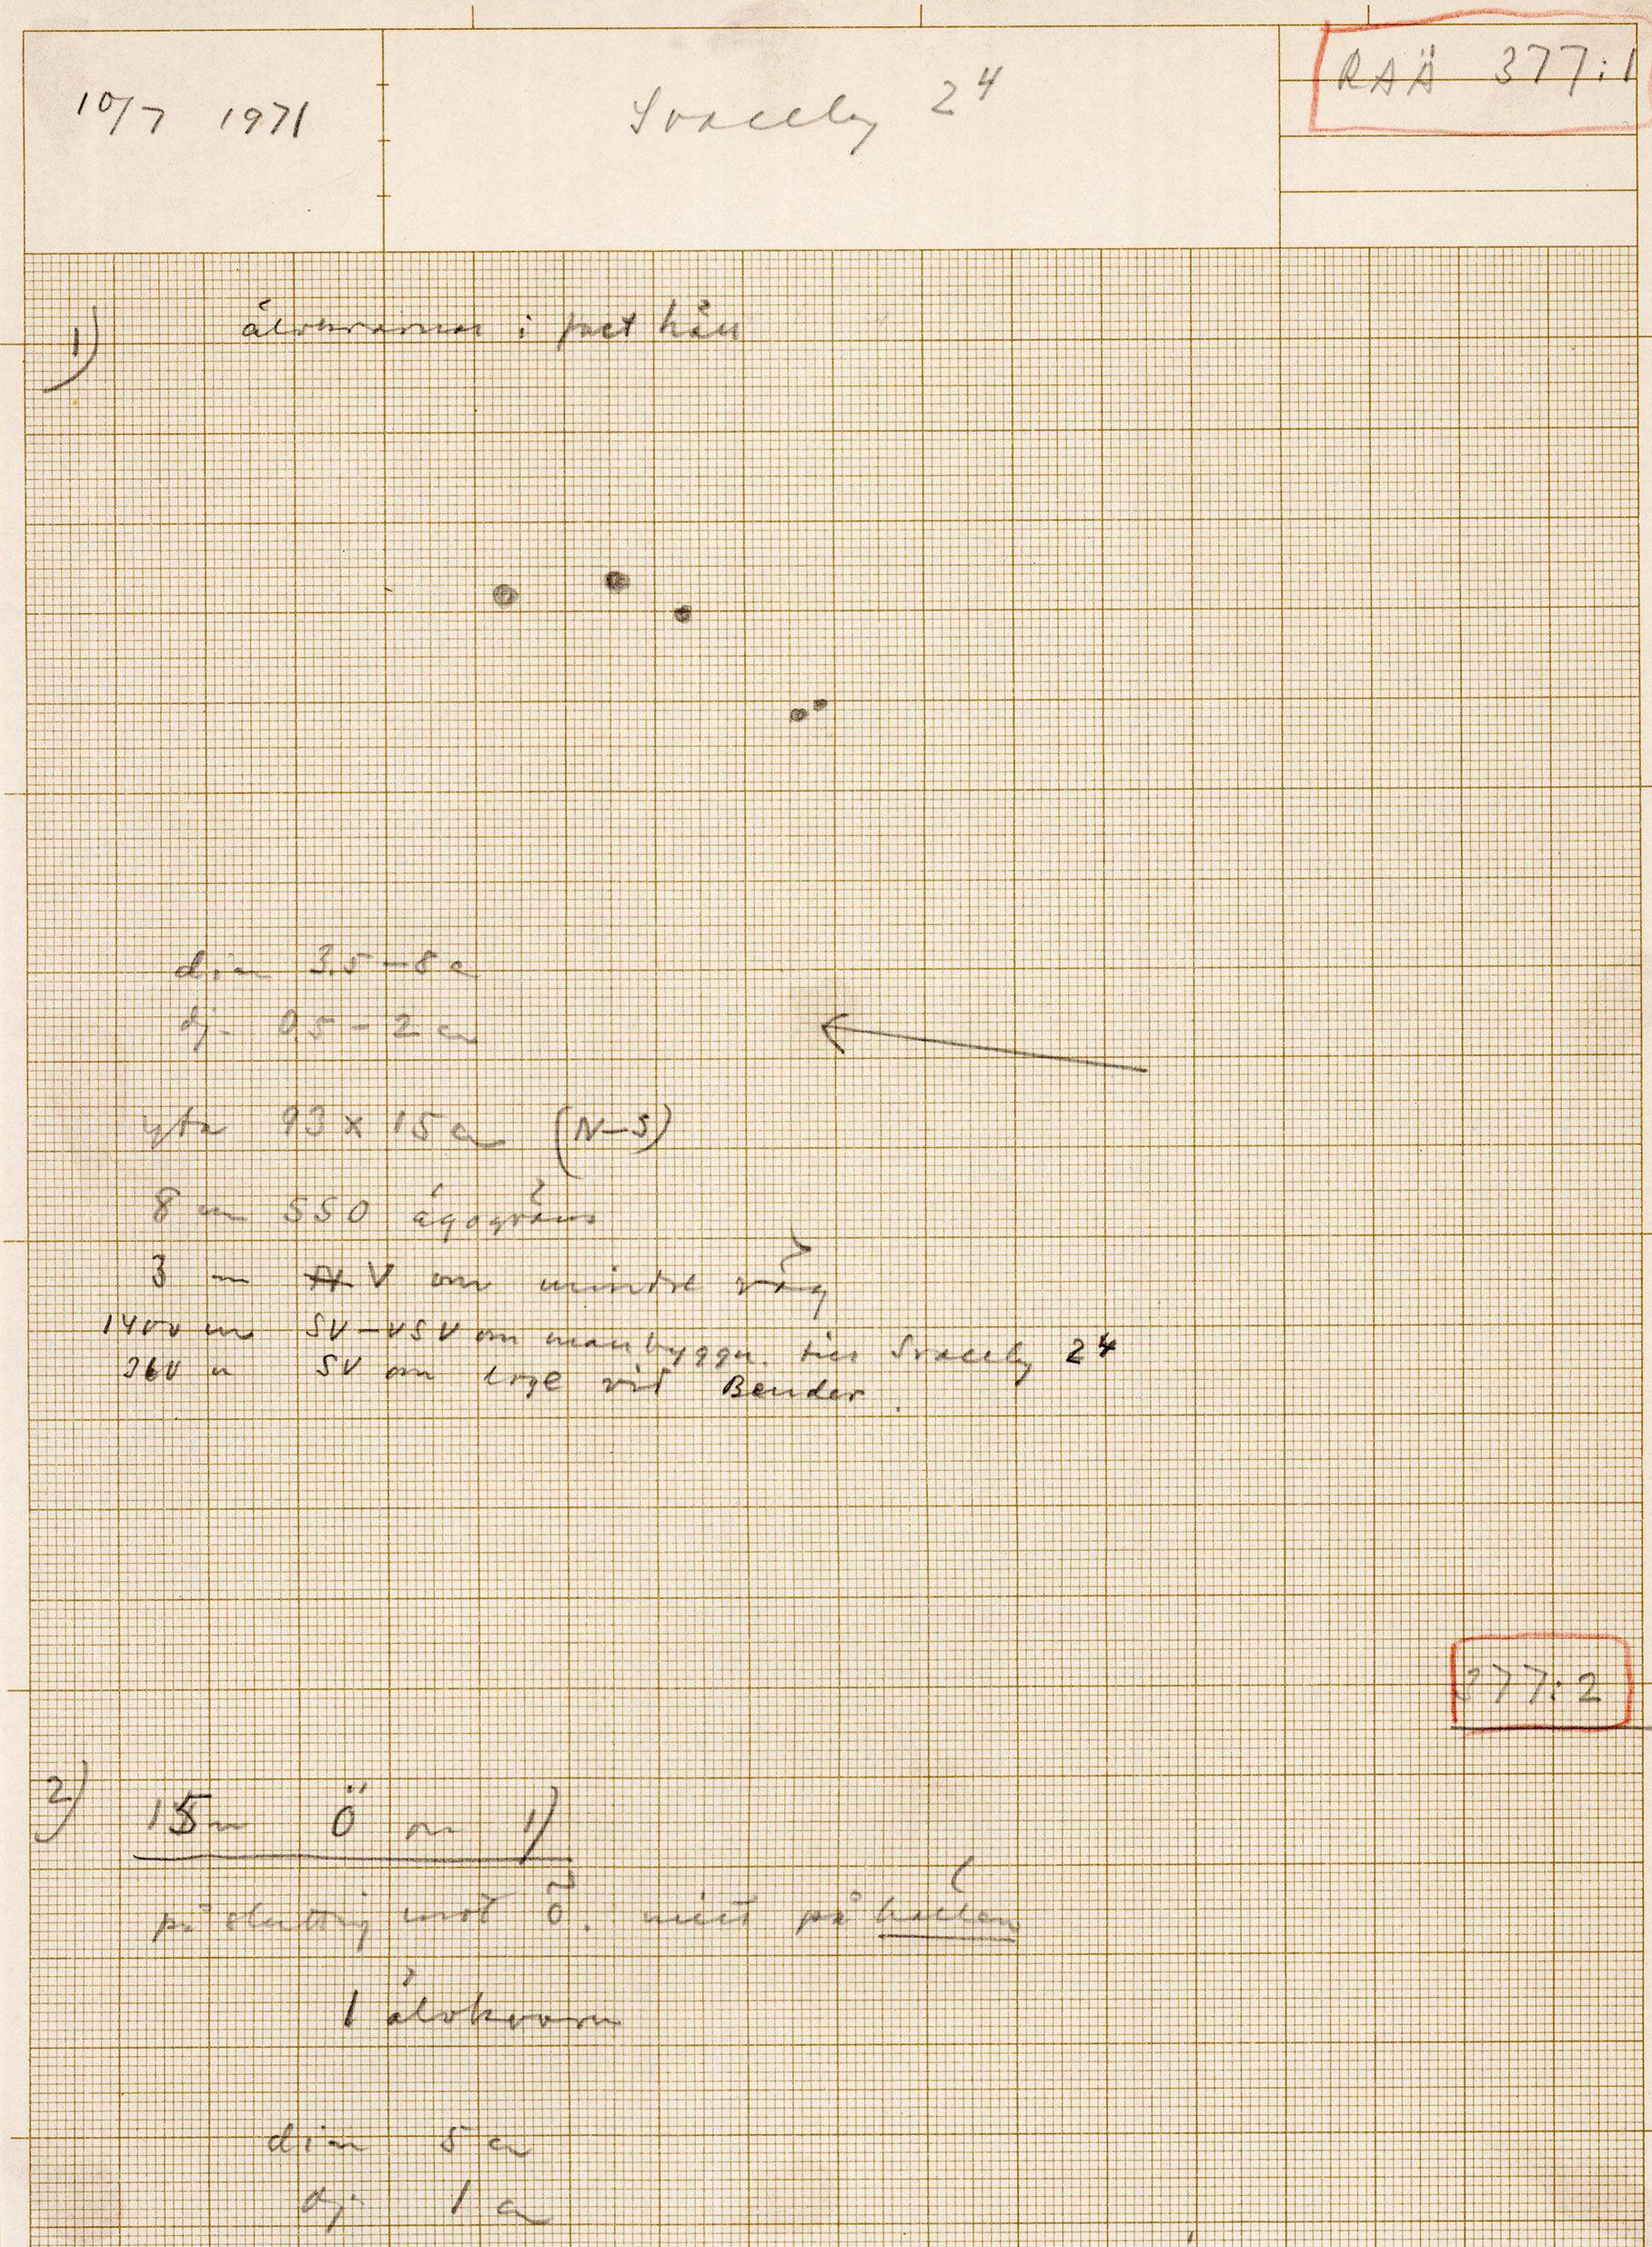 10/7 1971
Svaleby 2⁴
RAÄ 377:1
1) älvkvarnar i fast häll
dia 3.5 – 8 c
dj. 0.5 – 2 cm
yta 93 x 15 c (N–S)
8 m SSO ägogräns
3 m V om mindre väg
1400 m SV–VSV om manbyggn. till Svaleby 2⁴
360 m SV om loge vid Bender.
377:2
2) 15 m Ö om 1)
på sluttning mot Ö. mitt på hällen
1 älvkvarn
dia 5 c
dj. 1 c